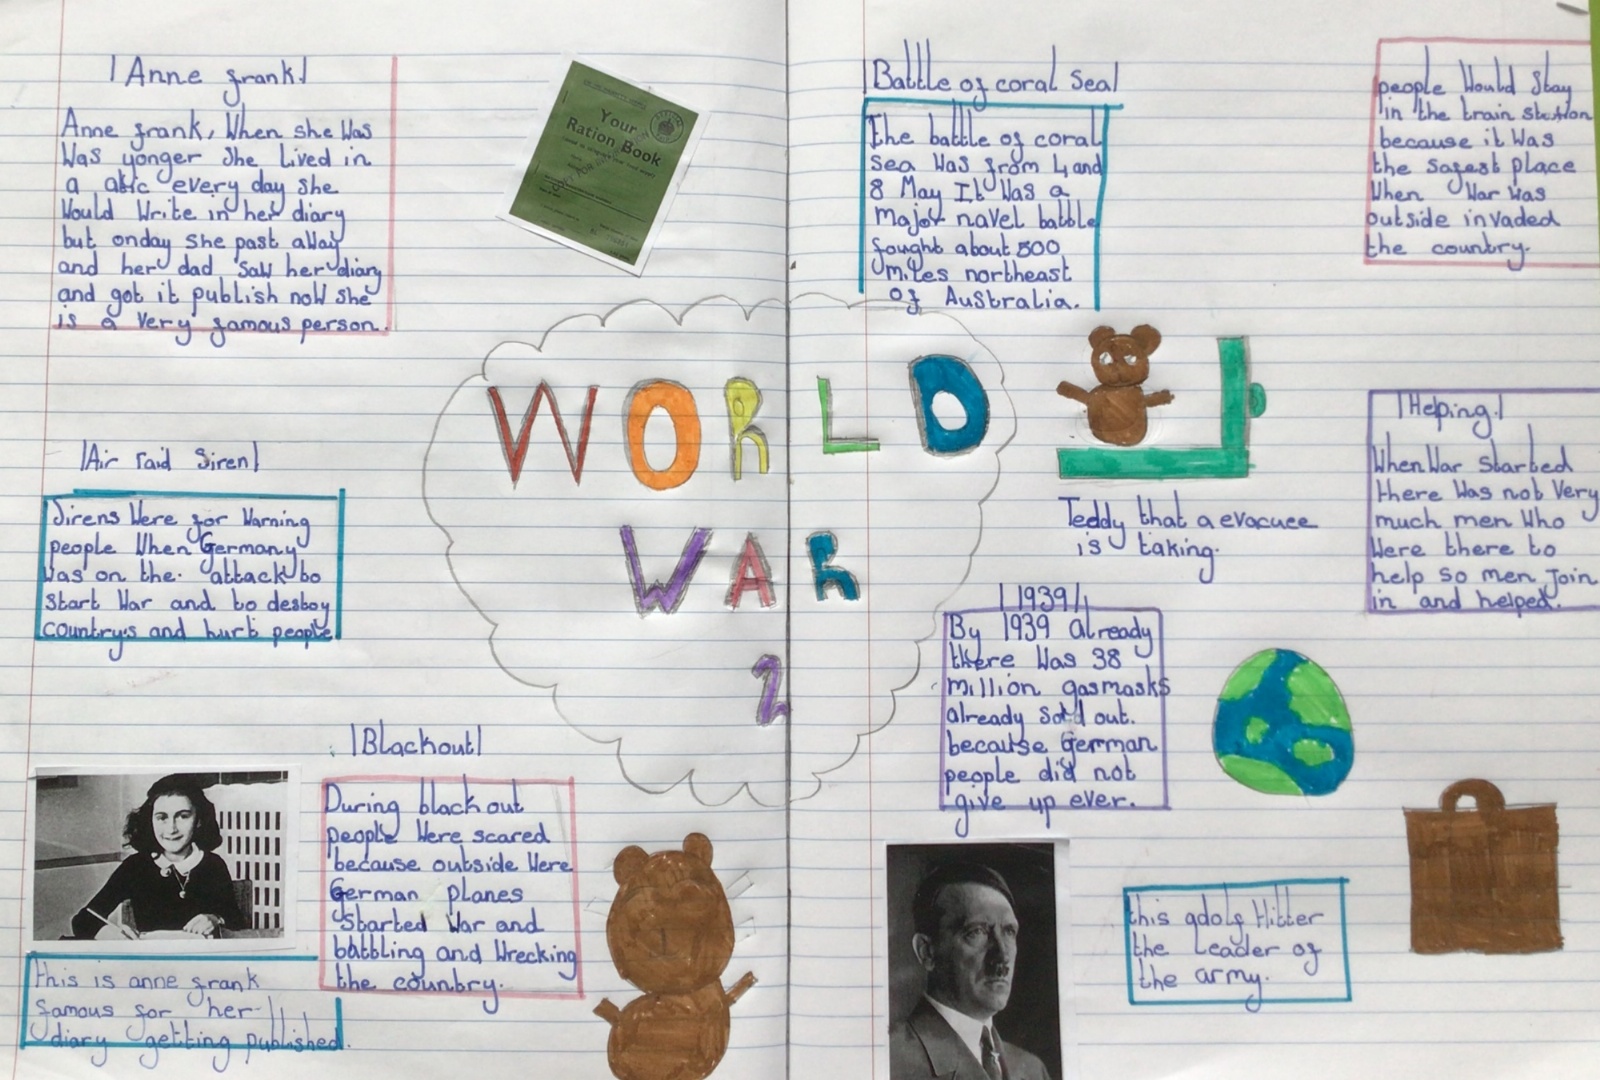 Anne frank!
Anne frank, When she Was
Was yonger she Lived in
a atic every day she
Would Write in her diary
but onday she past aWay
and her dad saW her diary
and got it publish noW she
is a Very famous person.
Your
Ration Book
Battle of coral Sea
the battle of coral
sea Was from 4 and
8 May It Was a
major navel battle
fought about 500
miles northeast
of Australia.
people Would Stay
in the train station
because it Was
the safest place
When War Was
outside invaded
the country.
WORLD
WAR
2
Air raid Siren
Sirens Were for Warning
people When Germany
Was on the. attack to
start War and to destoy
country's and hurt people
Teddy that a evacuee
is taking.
Helping!
When War Started
there Was not Very
much men Who
Were there to
help so men Join
in and helped.
1939
By 1939 already
there Was 38
million gasmasks
already sold out.
because German
people did not
give up ever.
Blackout
During black out
people Were scared
because outside Were
German planes
Started War and
battling and Wrecking
the country.
this is anne frank
famous for her
diary getting published.
this adolf Hitler
the Leader of
the army.